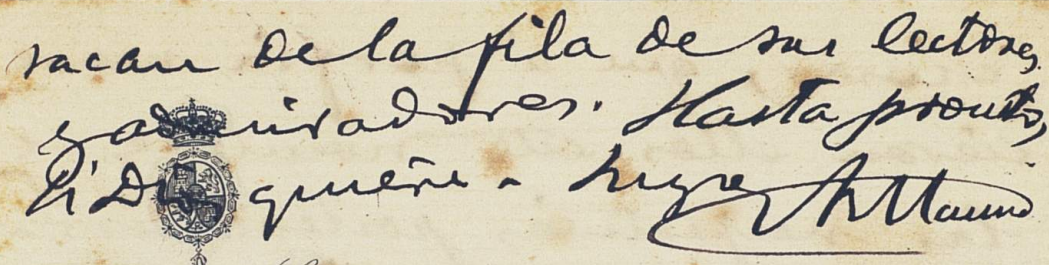 sacan de la fila de sus lectores
y admiradores. Hasta pronto,
si Dios quiere. Suyo A Maura